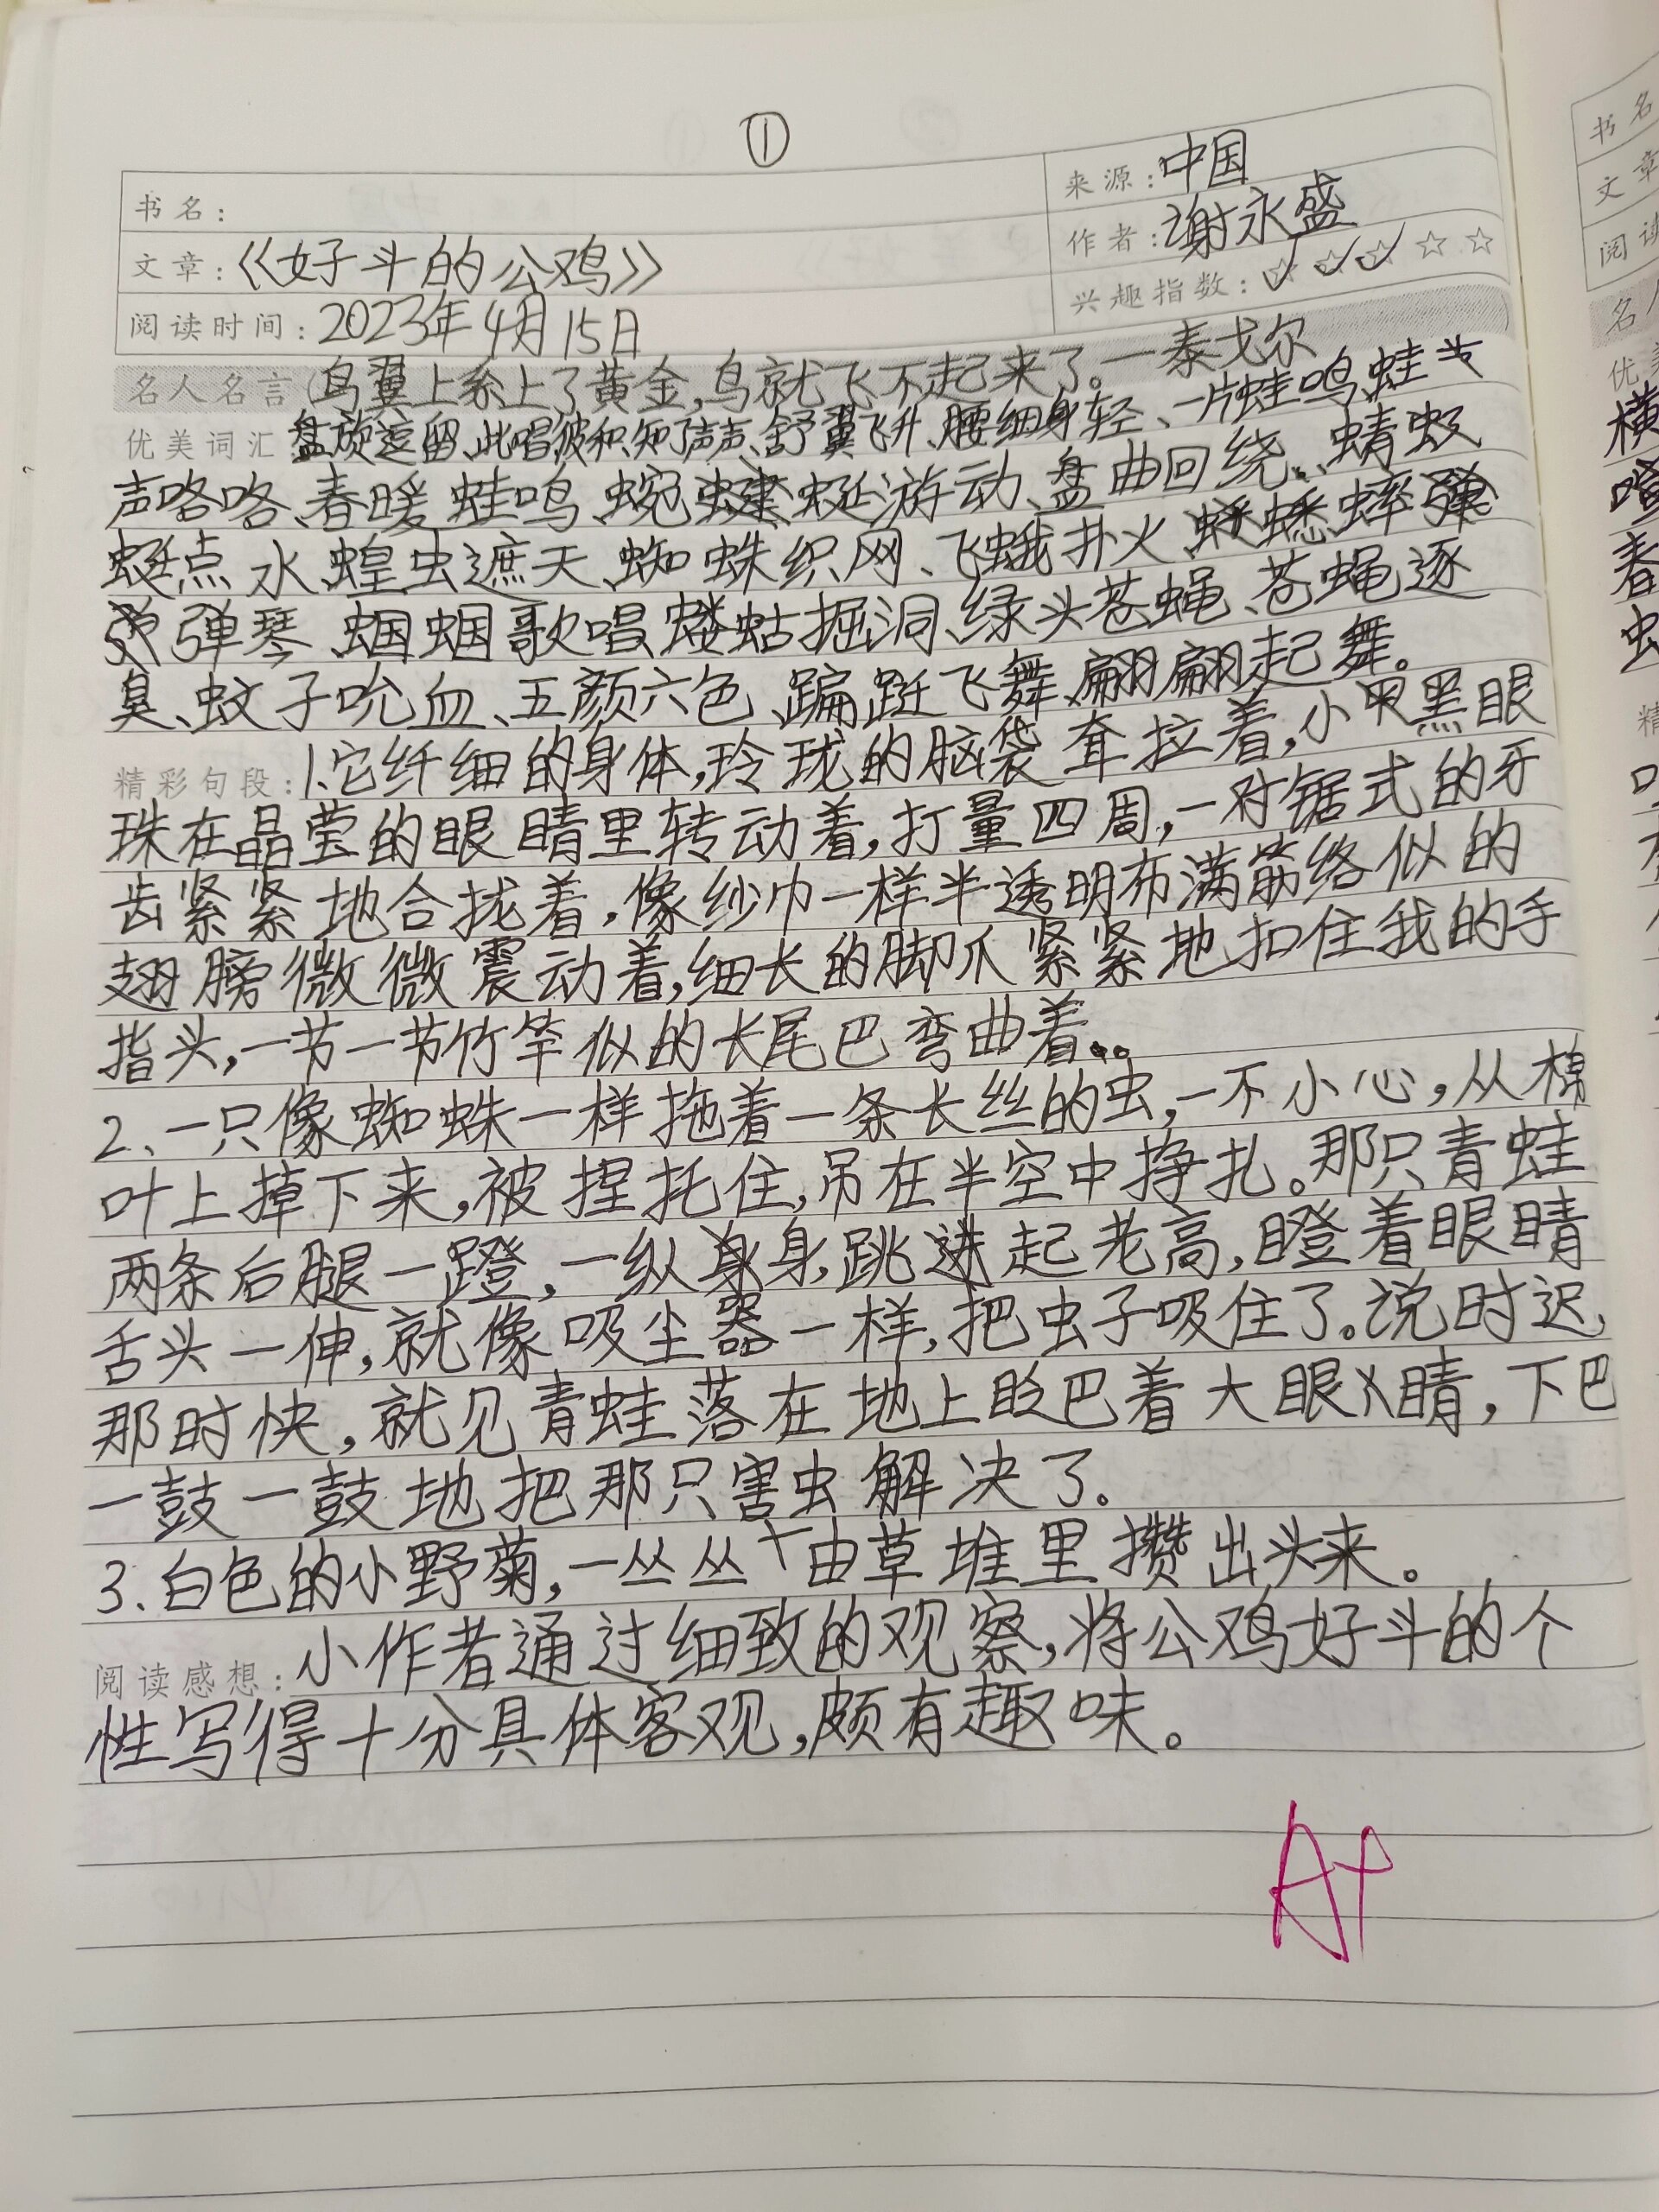 ①
书名：
来源：中国
文章：《好斗的公鸡》
作者：谢永盛
阅读时间：2023年4月15日
兴趣指数：☆☆☆☆☆
名人名言（鸟翼上系上了黄金,鸟就飞不起来了。—泰戈尔
优美词汇 盘旋逗留、此唱彼和、知了声声、舒翼飞升、腰细身轻、一片蛙鸣、蛙
声咯咯、春暖蛙鸣、蜿蜒游动、盘曲回绕、蜻
蜓点水、蝗虫遮天、蜘蛛织网、飞蛾扑火、蟋蟀
弹琴、蝈蝈歌唱、蝼蛄掘洞、绿头苍蝇、苍蝇逐
臭、蚊子吮血、五颜六色、蹁跹飞舞、翩翩起舞。
精彩句段：1、它纤细的身体,玲珑的脑袋耷拉着,小黑眼
珠在晶莹的眼睛里转动着,打量四周,一对锯式的牙
齿紧紧地合拢着,像纱巾一样半透明布满筋络似的
翅膀微微震动着,细长的脚爪紧紧地扣住我的手
指头,一节一节竹竿似的长尾巴弯曲着。
2、一只像蜘蛛一样拖着一条长丝的虫,一不小心,从棉
叶上掉下来,被捏托住,吊在半空中挣扎。那只青蛙
两条后腿一蹬,一纵身,跳起老高,瞪着眼睛
舌头一伸,就像吸尘器一样,把虫子吸住了。说时迟,
那时快,就见青蛙落在地上眨巴着大眼睛,下巴
一鼓一鼓地把那只害虫解决了。
3.白色的小野菊,一丛丛由草堆里攒出头来。
阅读感想：小作者通过细致的观察,将公鸡好斗的个
性写得十分具体客观,颇有趣味。
A+
书名
文章
阅读
名人
优美
横
春
虫
精